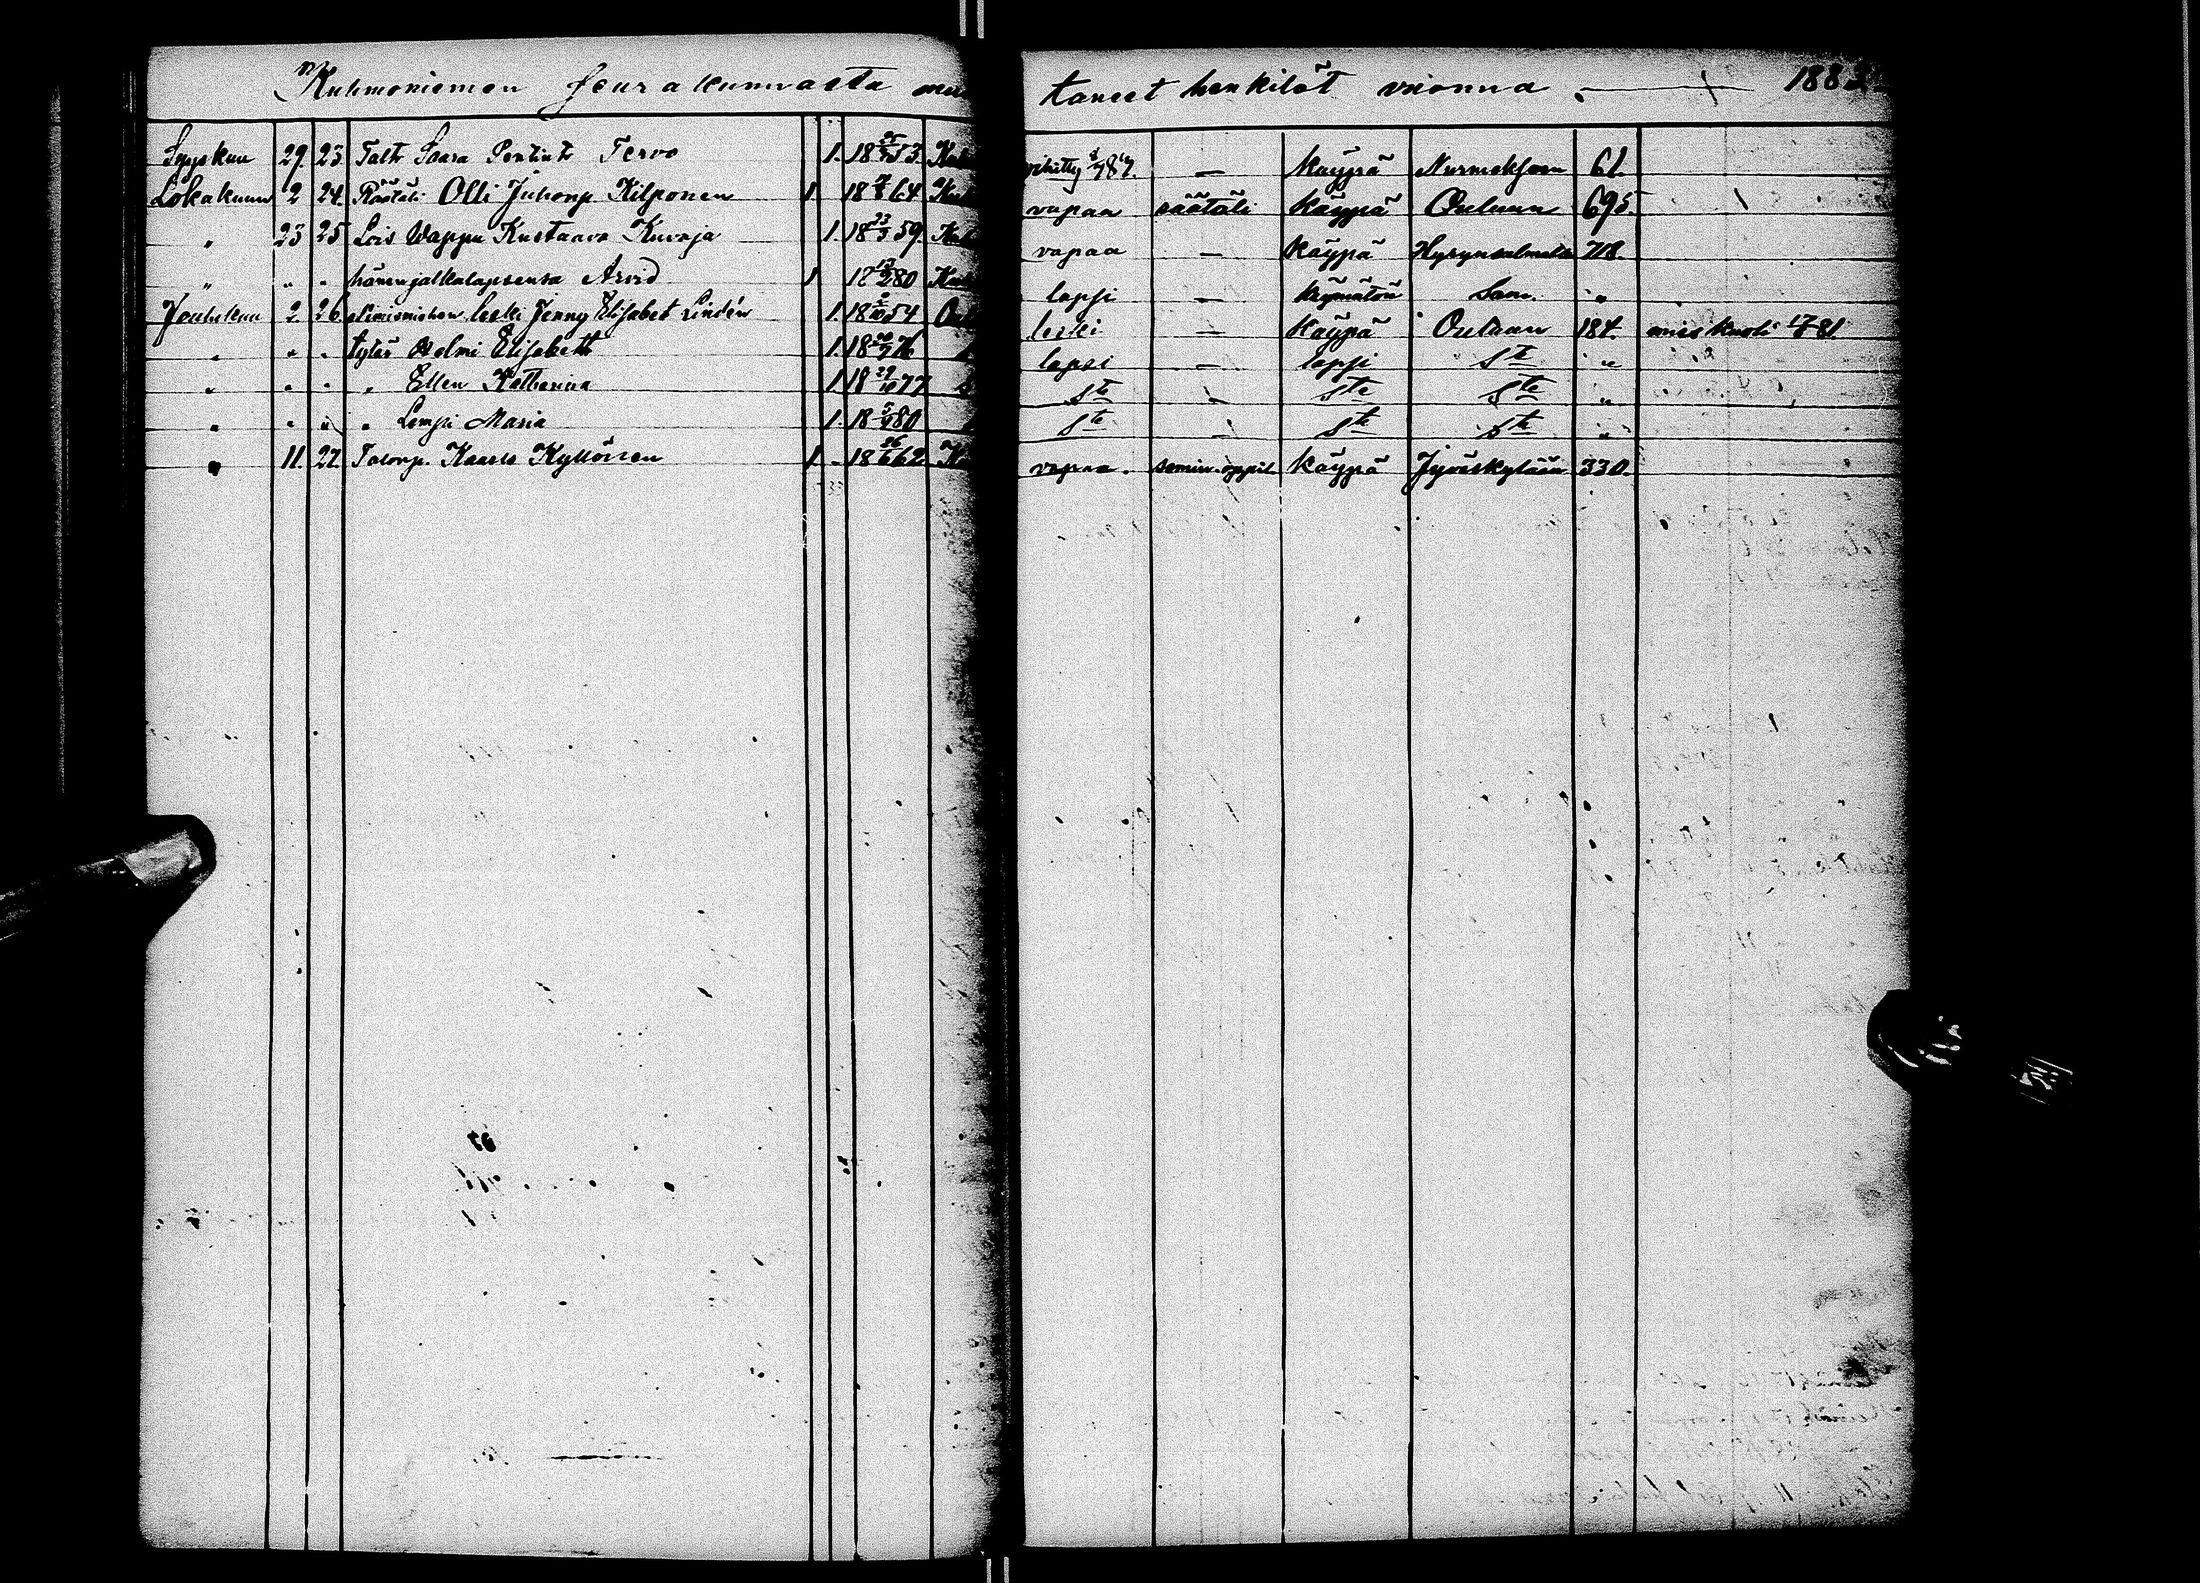 Kuhmoniemen seurakunnasta muut taneet henkilöt vuonna 1883
Syyskuu 29. 23. Taltr Saara Pentintr Tervo 1. 18 53. Kuh vihitty käypä Nurmekseen 61.
Lokakuun 2 24. Räätäli Olli Juhonp Kilponen 1 18 64 Kuh vapaa räätäli käypä Ouluun 695.
" 23 25 Lois Wappu Kustaava Kuvaja 1. 18 23/3 59. Kuh vapaa — käypä Hyrynsalmelle 718.
" " " hänen jalkalapsensa Arvid 1 18 80 Kuh lapsi — käymätön Sam. "
Joulukuu 2. 26 leski Jenny Elisabet Lindén 1. 18 54 Oul leski — käypä Ouluun 184. mies kuoli 81.
" " " tytär Helmi Elisabeth 1. 18 76 lapsi — lapsi Ste "
" " " " Ellen Katharina 1 18 29/10 77 Ste — Ste Ste "
" " " " Lempi Maria 1. 18 80 Ste — Ste Ste "
" 11. 27. Talonp. Kaarle Kyllönen 1 - 18 26/6 62 Ku vapaa. semin. oppil käypä Jyväskylään 330.